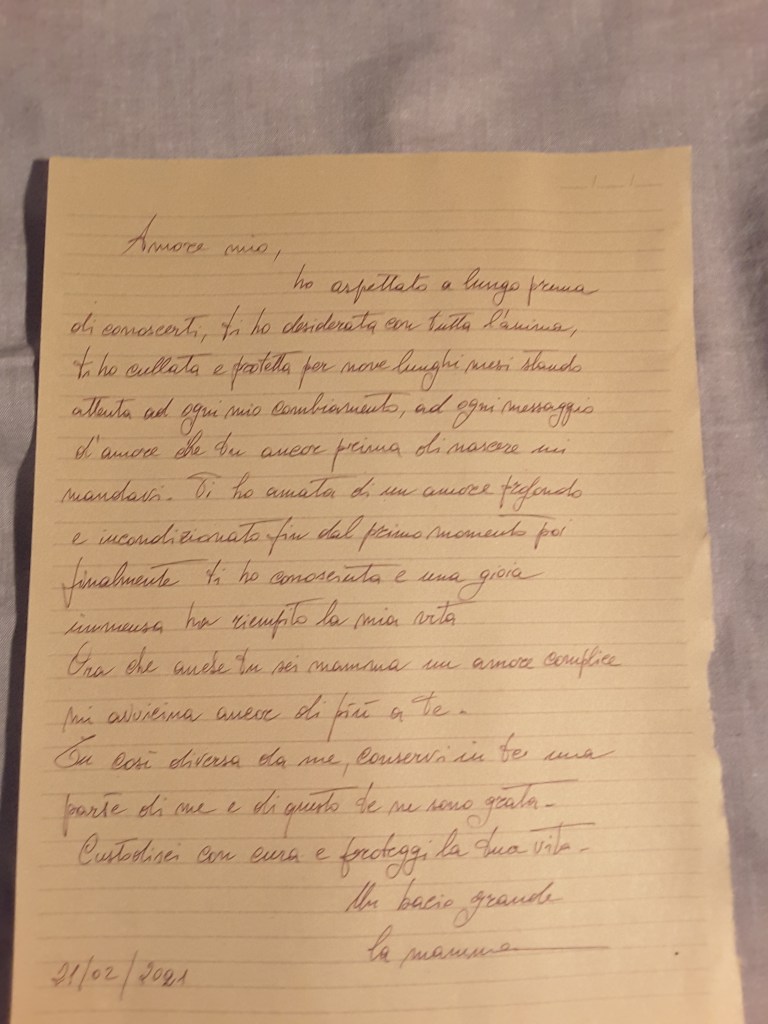 Amore mio,
ho aspettato a lungo prima
di conoscerti, ti ho desiderata con tutta l'anima,
ti ho cullata e protetta per nove lunghi mesi stando
attenta ad ogni mio cambiamento, ad ogni messaggio
d'amore che tu ancor prima di nascere mi
mandavi. Ti ho amata di un amore profondo
e incondizionato fin dal primo momento poi
finalmente ti ho conosciuta e una gioia
immensa ha riempito la mia vita
Ora che anche tu sei mamma un amore complice
mi avvicina ancor di più a te.
Tu così diversa da me, conservi in te una
parte di me e di questo te ne sono grata.
Custodisci con cura e proteggi la tua vita.
Un bacio grande
la mamma
21/02/2021